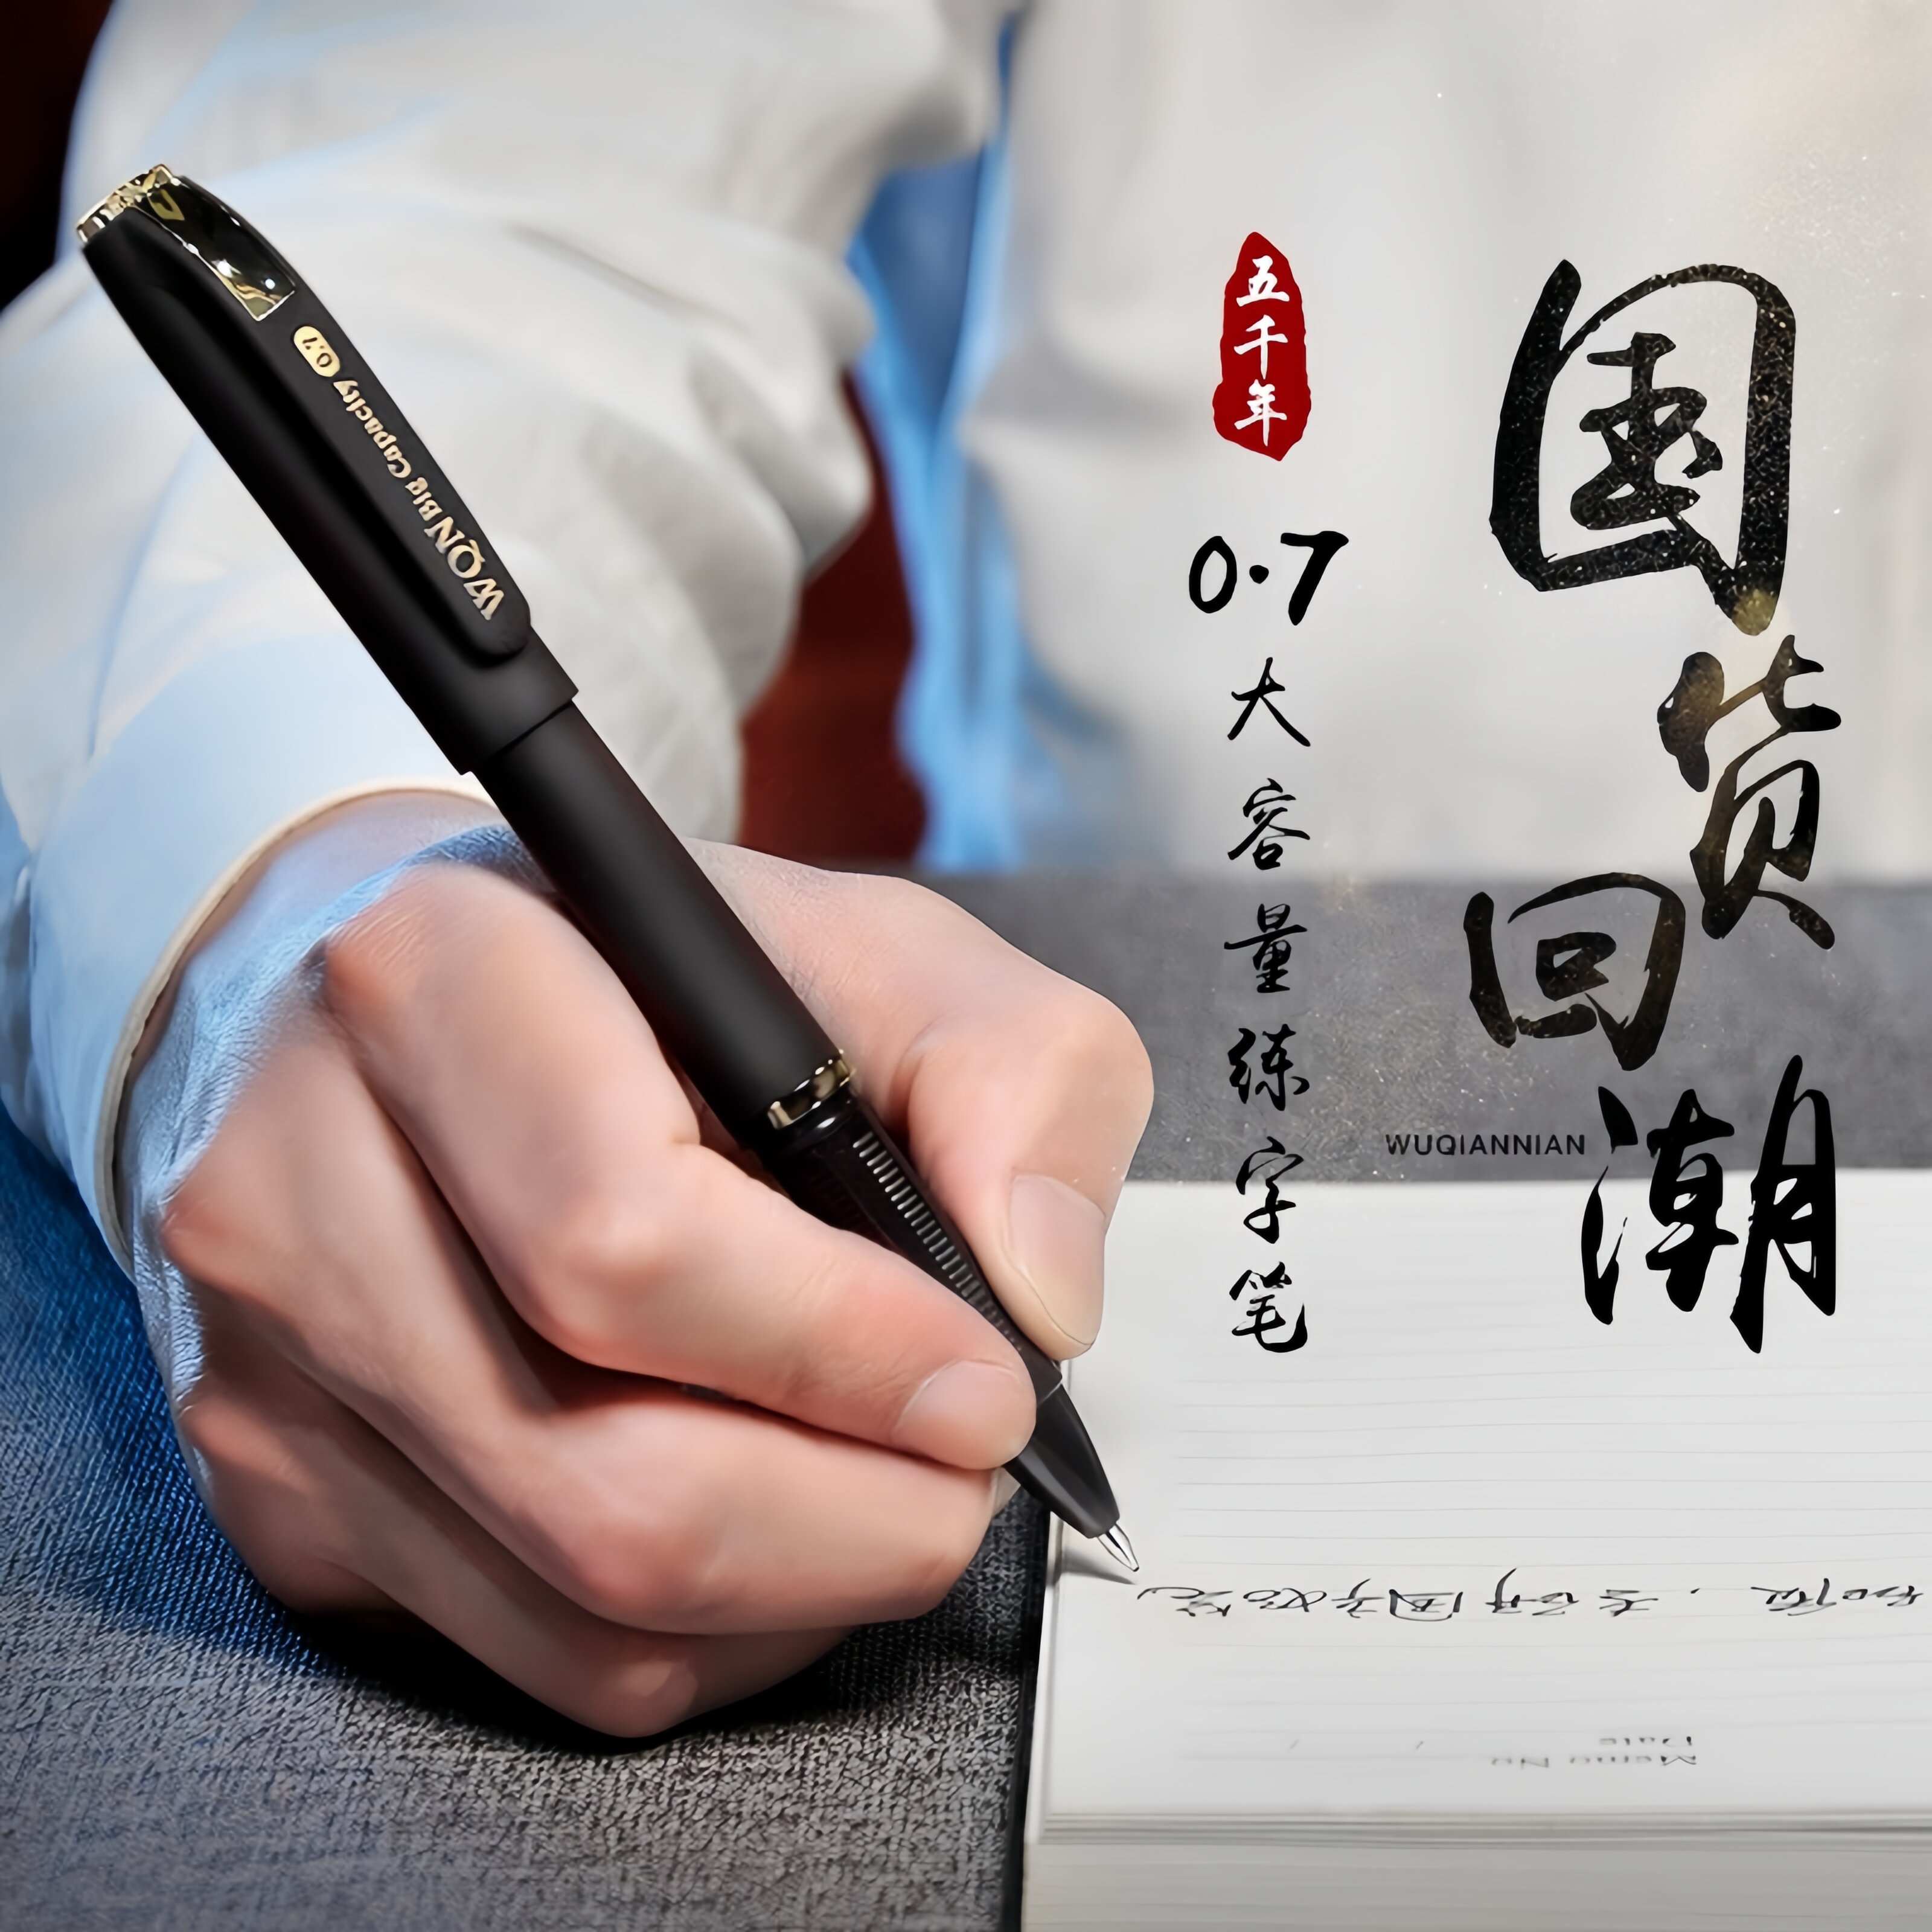 国货回潮
WUQIANNIAN
五千年
0.7
大容量练字笔
WQN Big Capacity 0.7
Memo No
Date